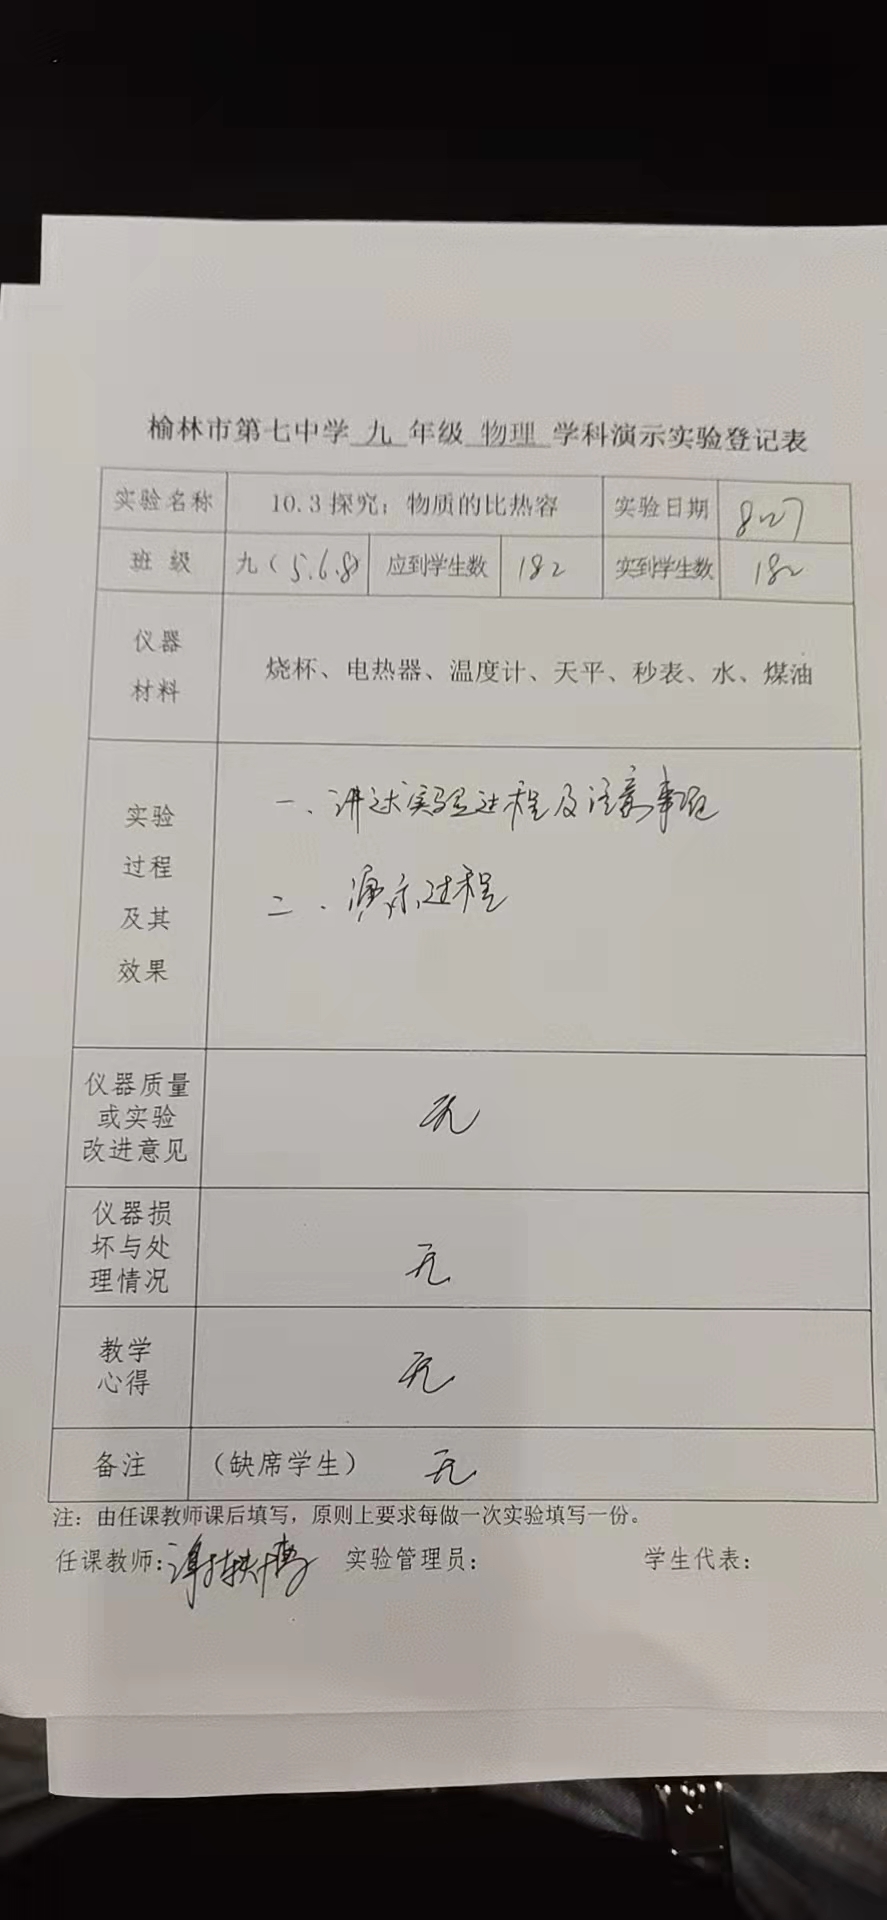 榆林市第七中学 九 年级 物理 学科演示实验登记表
实验名称 10.3 探究：物质的比热容 实验日期 8.27
班 级 九（5.6.8） 应到学生数 182 实到学生数 182
仪器
材料
烧杯、电热器、温度计、天平、秒表、水、煤油
实验
过程
及其
效果
一、讲述实验过程及注意事项
二、演示过程
仪器质量
或实验
改进意见
无
仪器损
坏与处
理情况
无
教学
心得
无
备注 （缺席学生） 无
注：由任课教师课后填写，原则上要求每做一次实验填写一份。
任课教师： 实验管理员： 学生代表：